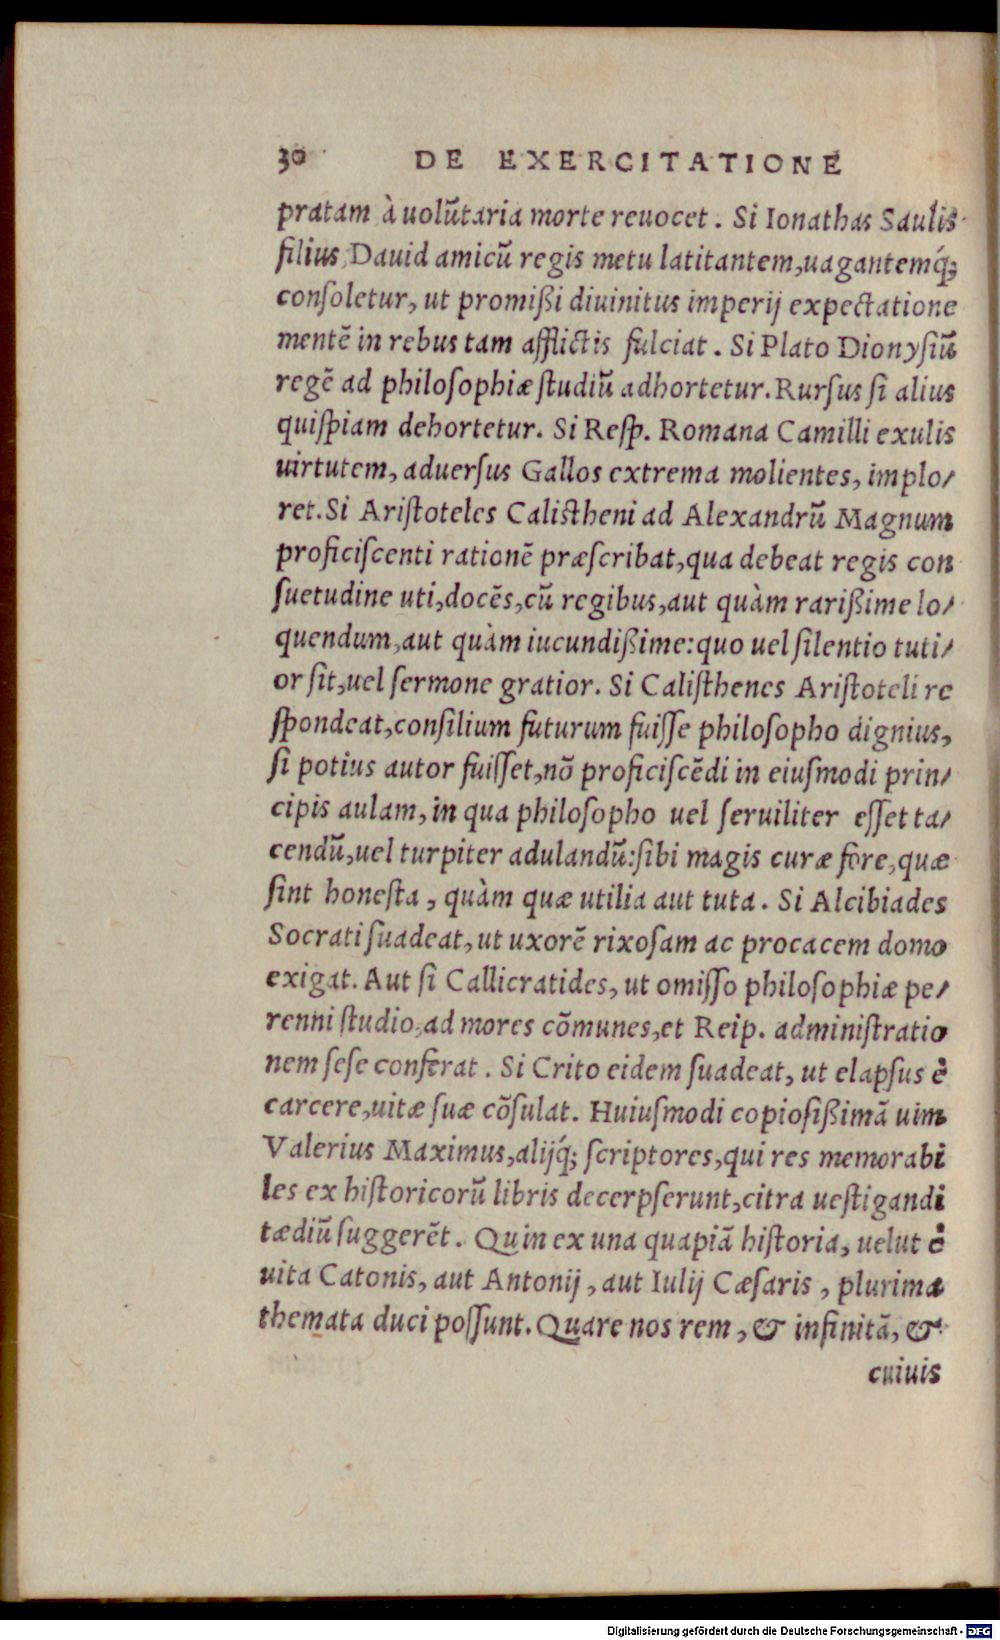 30 DE EXERCITATIONE
pratam à uolũtaria morte reuocet. Si Ionathas Saulis
filius, Dauid amicũ regis metu latitantem, uagantemq́;
conſoletur, ut promißi diuinitus imperij expectatione
mentẽ in rebus tam afflictis fulciat. Si Plato Dionyſiũ
regẽ ad philoſophiæ ſtudiũ adhortetur. Rurſus ſi alius
quiſpiam dehortetur. Si Reſp. Romana Camilli exulis
uirtutem, aduerſus Gallos extrema molientes, implo/
ret. Si Ariſtoteles Caliſtheni ad Alexandrũ Magnum
proficiſcenti rationẽ præſcribat, qua debeat regis con
ſuetudine uti, docẽs, cũ regibus, aut quàm rarißime lo/
quendum, aut quàm iucundißime: quo uel ſilentio tuti/
or ſit, uel ſermone gratior. Si Caliſthenes Ariſtoteli re
ſpondeat, conſilium futurum fuiſſe philoſopho dignius,
ſi potius autor fuiſſet, nõ proficiſcẽdi in eiuſmodi prin/
cipis aulam, in qua philoſopho uel ſeruiliter eſſet ta/
cendũ, uel turpiter adulandũ: ſibi magis curæ fore, quæ
ſint honeſta, quàm quæ utilia aut tuta. Si Alcibiades
Socrati ſuadeat, ut uxorẽ rixoſam ac procacem domo
exigat. Aut ſi Callicratides, ut omiſſo philoſophiæ pe/
renni ſtudio, ad mores cõmunes, et Reip. adminiſtratio
nem ſeſe conferat. Si Crito eidem ſuadeat, ut elapſus è
carcere, uitæ ſuæ cõſulat. Huiuſmodi copioſißimã uim
Valerius Maximus, alijq́; ſcriptores, qui res memorabi
les ex hiſtoricorũ libris decerpſerunt, citra ueſtigandi
tædiũ ſuggerẽt. Quin ex una quapiã hiſtoria, uelut è
uita Catonis, aut Antonij, aut Iulij Cæſaris, plurima
themata duci poſſunt. Quare nos rem, & infinitã, &
cuiuis
Digitalisierung gefördert durch die Deutsche Forschungsgemeinschaft - DFG